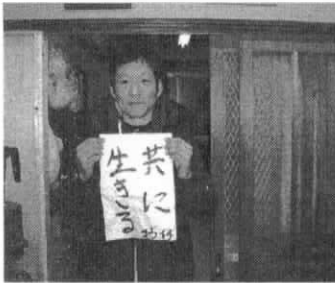 共に
生きる